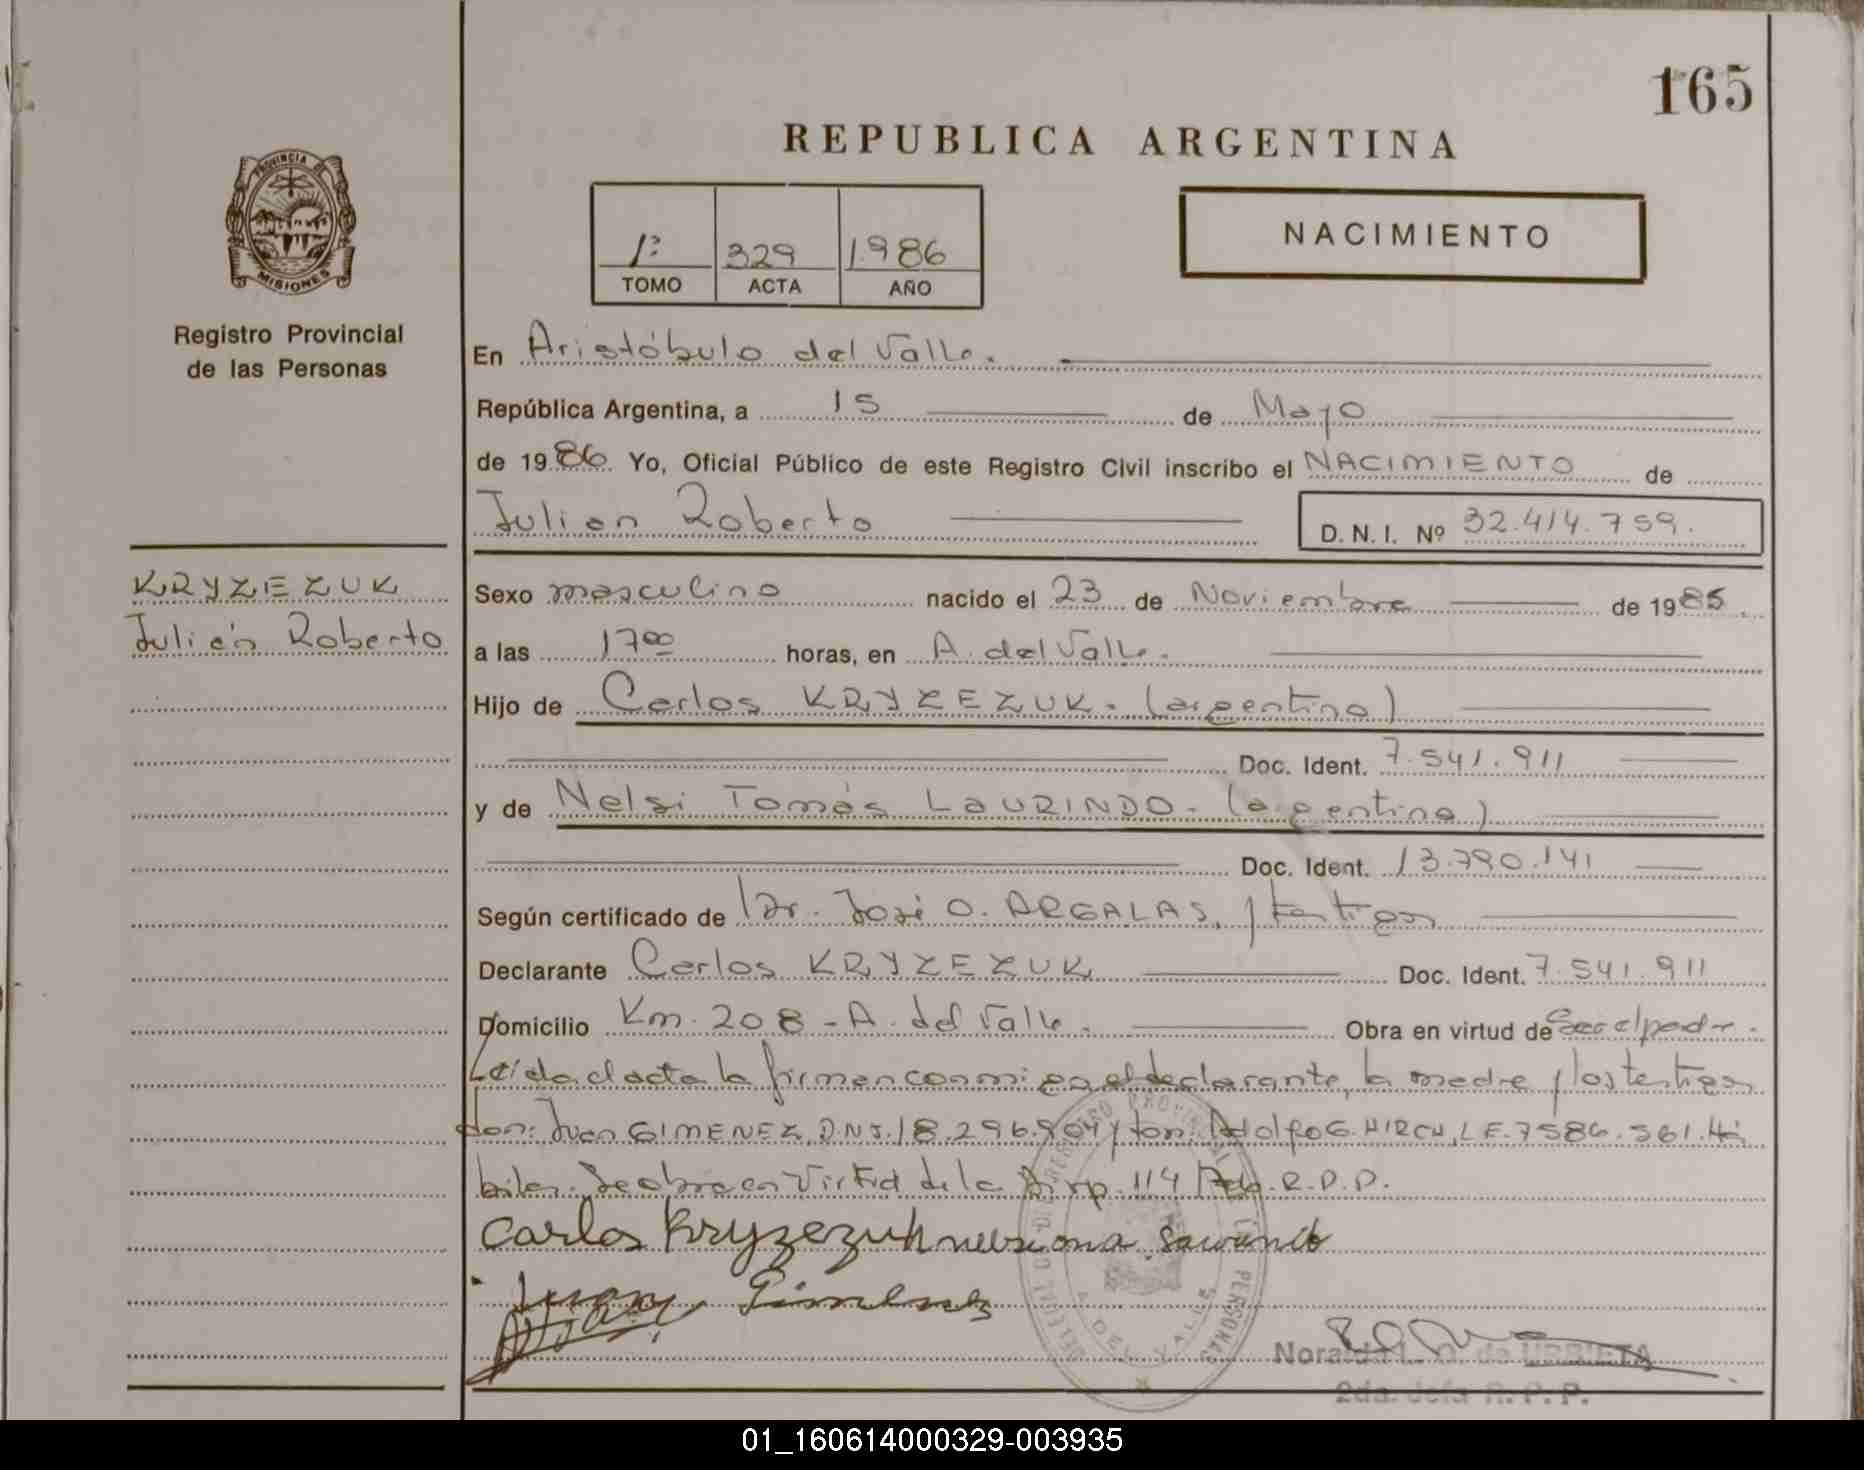 165
REPUBLICA ARGENTINA
PROVINCIA DE
MISIONES
Registro Provincial
de las Personas
1º 329 1986
TOMO ACTA AÑO
NACIMIENTO
En Aristóbulo del Valle.
República Argentina, a 15 de Mayo
de 1986 Yo, Oficial Público de este Registro Civil inscribo el NACIMIENTO de
Julian Roberto D. N. I. Nº 32.414.759.
KRYZEZUK
Julián Roberto
Sexo masculino nacido el 23 de Noviembre de 1985
a las 17ºº horas, en A. del Valle.
Hijo de Carlos KRYZEZUK. (argentino)
Doc. Ident. 7.541.911
y de Nelsi Tomás LAURINDO. (argentina)
Doc. Ident. 13.790.141
Según certificado de Dr. José O. ARGALAS, y testigos
Declarante Carlos KRYZEZUK Doc. Ident. 7.541.911
Domicilio Km. 208 - A. del Valle. Obra en virtud de Ser el padre.
Leída el acta la firman conmigo el declarante, la madre y los testigos
don: Juan GIMENEZ, D.N.I. 18.296.904 y don: Adolfo G. HIRCH, L.E. 7586.561. Há
biles. Se obra en Virtud de la Disp. 114 R.P.P.
Carlos Kryzezuk
Juan Gimenez
DEL REGISTRO PROVINCIAL DE LAS PERSONAS
A. DEL VALLE
Noraida L. O. de URRIETA
2da. Jefa R. P. P.
01_160614000329-003935